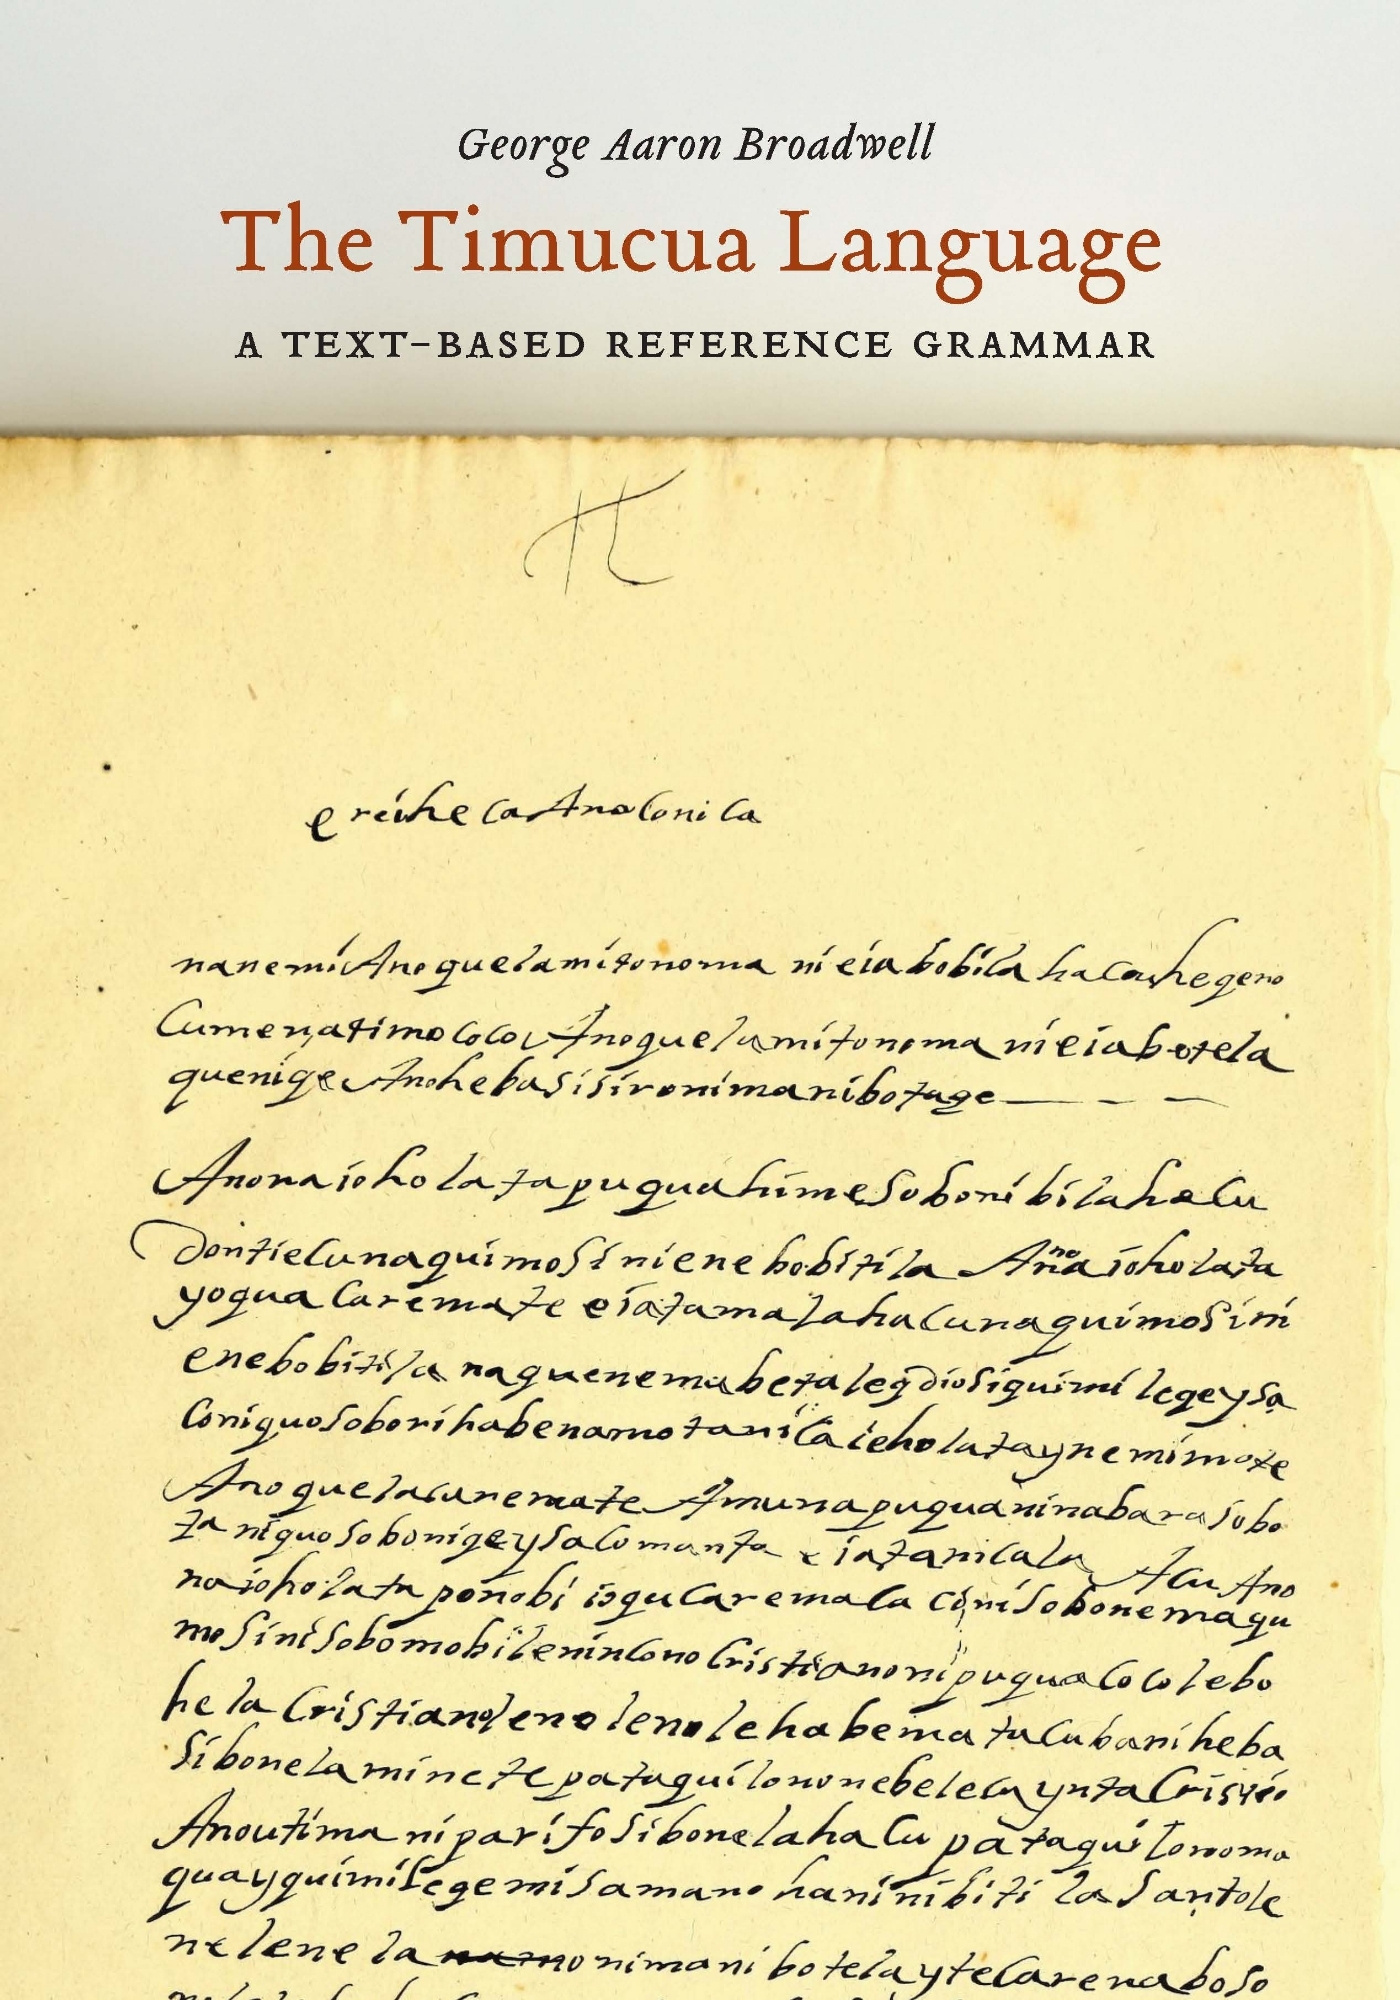 George Aaron Broadwell
The Timucua Language
A TEXT-BASED REFERENCE GRAMMAR
nanemi Anoquelamitonoma nieiabobila
Anoquelamitonoma nieiabotela
quenige Anohebasisironimanibotage
Anonaioholatapuquahimesobonibilahacu
dontiecunaquimosiniene bobitila Anonaioholata
yoquacaremate eiatamalahacunaquimosini
enebobitila naquenemabetaleq diosiquimilegeysa
coniquosobonihabenamotanica ieholataynemimate
Anoquelacaremate Amunapuquaninabarasobo
taniquosobonigeysalomanta eiatanicala Acu Ano
naioholata ponobi isqucaremaca sobonemaqu
mosinisobomobileninconocristianonipuquacocolebo
hela cristianolenolenolehabema tacubaniheba
sibonelaminete pataquilononebelelaynta
Anoutima niparifosibonelahacu pataquilonoma
quayquimilegemisamano haninibiti la santole
nelenela nimanibotelaytecarenaboso